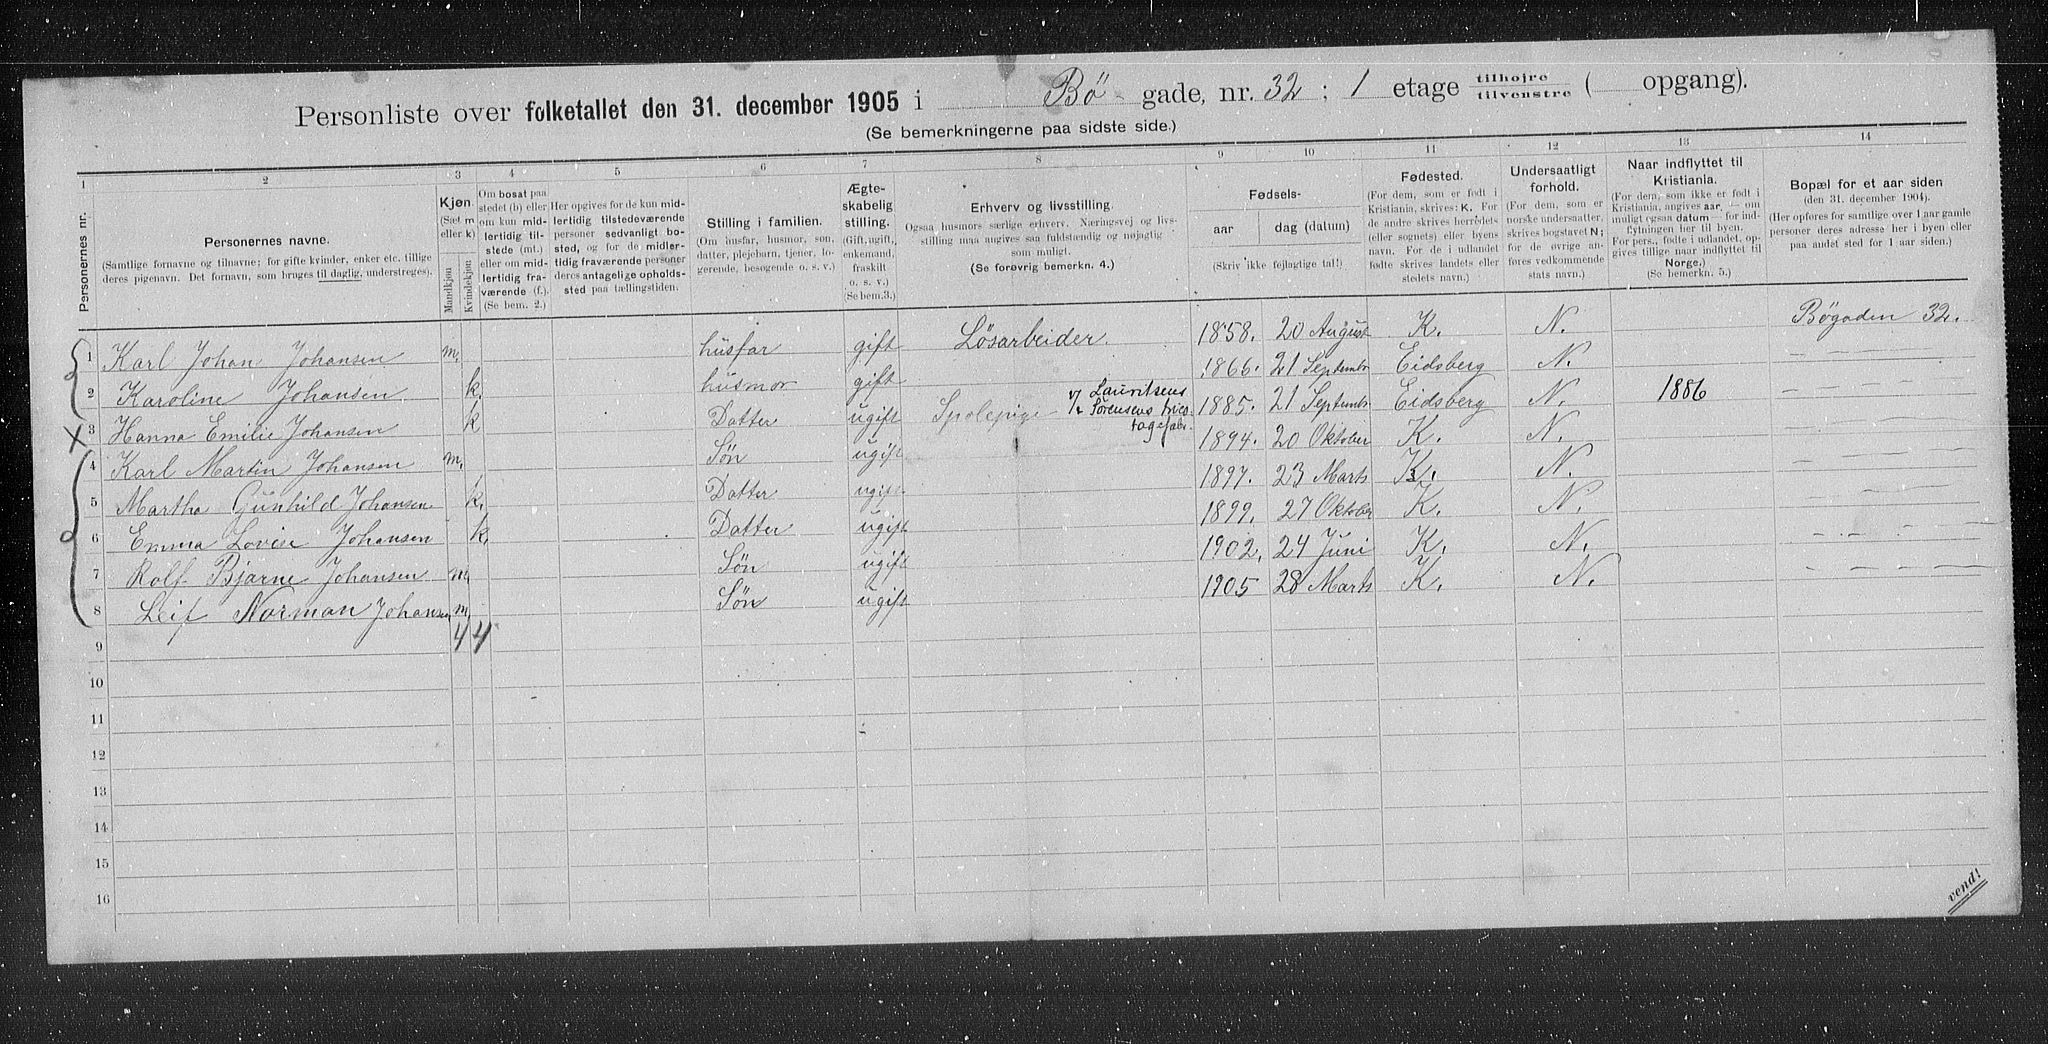 Personliste over folketallet den 31. december 1905 i Bø gade, nr. 32 ; 1 etage tilhøjre / tilvenstre ( opgang).
(Se bemerkningerne paa sidste side.)
1 2 3 4 5 6 7 8 9 10 11 12 13 14
Personernes nr.
Personernes navne.
(Samtlige fornavne og tilnavne; for gifte kvinder, enker etc. tillige
deres pigenavn. Det fornavn, som bruges til daglig, understreges).
Kjøn.
(Sæt m
eller k)
Mandkjøn
Kvindekjøn
Om bosat paa
stedet (b) eller
om kun mid-
lertidig til-
stede (mt.)
eller om mid-
lertidig fra-
værende (f.).
(Se bem. 2.)
Her opgives for de kun mid-
lertidig tilstedeværende
personer sedvanligt bo-
sted, og for de midler-
tidig fraværende personer
deres antagelige opholds-
sted paa tællingstiden.
Stilling i familien.
(Om husfar, husmor, søn,
datter, plejebarn, tjener, lo-
gerende, besøgende o. s. v.)
Ægte-
skabelig
stilling.
(Gift, ugift,
enkemand,
fraskilt
o. s. v.)
(Se bem.3.)
Erhverv og livsstilling.
Ogsaa husmors særlige erhverv. Næringsvej og livs-
stilling maa angives saa fuldstændig og nøjagtig
som muligt.
(Se forøvrig bemerkn. 4.)
Fødsels-
aar dag (datum)
(Skriv ikke fejlagtige tal!)
Fødested.
(For dem, som er født i
Kristiania, skrives: K. For
de andre skrives herredets
(eller sognets) eller byens
navn. For de i udlandet
fødte skrives landets eller
stedets navn.)
Undersaatligt
forhold.
(For dem, som er
norske undersaatter,
skrives bogstavet N;
for de øvrige an-
føres vedkommende
stats navn.)
Naar indflyttet til
Kristiania.
(For dem, som ikke er født i
Kristiania, angives aar, — om
muligt ogsaa datum — for ind-
flytningen her til byen.
For pers., fødte i udlandet, op-
gives tillige naar indflyttet til
Norge.)
(Se bemerkn. 5.)
Bopæl for et aar siden
(den 31. december 1904).
(Her opføres for samtlige over 1 aar gamle
personer deres adresse her i byen eller
paa andet sted for 1 aar siden.)
1 Karl Johan Johansen m. husfar gift Løsarbeider. 1858. 20 August K. N. Bøgaden 32.
2 Karoline Johansen k. husmor gift 1866. 21 Septembr Eidsberg N. – – – –
3 Hanna Emilie Johansen k Datter ugift Spolepige v/ Lauritsens 1885. 21 Septembr Eidsberg N. 1886 – – – –
4 Karl Martin Johansen m. Søn ugift 1894. 20 Oktober K. N. – – – –
5 Martha Gunhild Johansen k. Datter ugift 1897. 23 Marts K. N. – – – –
6 Emma Lovise Johansen k. Datter ugift 1899. 27 Oktober K. N. – – – –
7 Rolf Bjarne Johansen m. Søn ugift 1902. 24 Juni K. N. – – – –
8 Leif Norman Johansen m. Søn ugift 1905 28 Marts K. N. – – – –
4 4
9
10
11
12
13
14
15
16
vend!